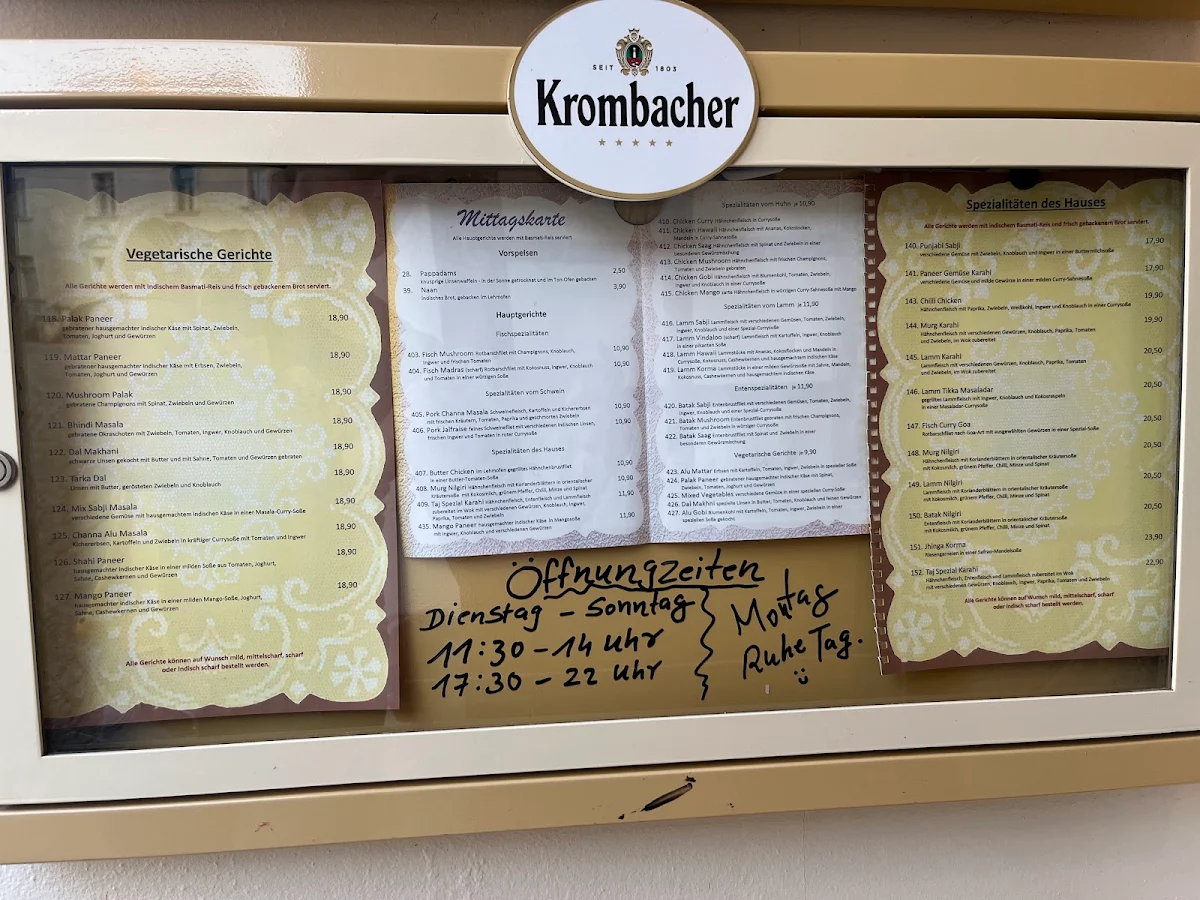 SEIT 1803
Krombacher
Vegetarische Gerichte
Alle Gerichte werden mit indischem Basmati-Reis und frisch gebackenem Brot serviert.
118. Palak Paneer 18,90
gebratener hausgemachter indischer Käse mit Spinat, Zwiebeln,
Tomaten, Joghurt und Gewürzen
119. Mattar Paneer 18,90
gebratener hausgemachter indischer Käse mit Erbsen, Zwiebeln,
Tomaten, Joghurt und Gewürzen
120. Mushroom Palak 18,90
gebratene Champignons mit Spinat, Zwiebeln und Gewürzen
121. Bhindi Masala 18,90
gebratene Okraschoten mit Zwiebeln, Tomaten, Ingwer, Knoblauch und Gewürzen
122. Dal Makhani 18,90
schwarze Linsen gekocht mit Butter und mit Sahne, Tomaten und Gewürzen gebraten
123. Tarka Dal 18,90
Linsen mit Butter, gerösteten Zwiebeln und Knoblauch
124. Mix Sabji Masala 18,90
verschiedene Gemüse mit hausgemachtem indischen Käse in einer Masala-Curry-Soße
125. Channa Alu Masala 18,90
Kichererbsen, Kartoffeln und Zwiebeln in kräftiger Currysoße mit Tomaten und Ingwer
126. Shahi Paneer 18,90
hausgemachter indischer Käse in einer milden Soße aus Tomaten, Joghurt,
Sahne, Cashewkernen und Gewürzen
127. Mango Paneer 18,90
hausgemachter indischer Käse in einer milden Mango-Soße, Joghurt,
Sahne, Cashewkernen und Gewürzen
Alle Gerichte können auf Wunsch mild, mittelscharf, scharf
oder indisch scharf bestellt werden.
Mittagskarte
Alle Hauptgerichte werden mit Basmati-Reis serviert
Vorspeisen
28. Pappadams 2,50
knusprige Linsenwaffeln - in der Sonne getrocknet und im Ton-Ofen gebacken
39. Naan 3,90
indisches Brot, gebacken im Lehmofen
Hauptgerichte
Fischspezialitäten
403. Fisch Mushroom Rotbarschfilet mit Champignons, Knoblauch, 10,90
Ingwer und frischen Tomaten
404. Fisch Madras (scharf) Rotbarschfilet mit Kokosnuss, Ingwer, Knoblauch 10,90
und Tomaten in einer würzigen Soße
Spezialitäten vom Schwein
405. Pork Channa Masala Schweinefleisch, Kartoffeln und Kichererbsen 10,90
mit frischen Kräutern, Tomaten, Paprika und geschmorten Zwiebeln
406. Pork Jalfraise feines Schweinefilet mit verschiedenen indischen Linsen, 10,90
frischen Ingwer und Tomaten in roter Currysoße
Spezialitäten des Hauses
407. Butter Chicken im Lehmofen gegrilltes Hähnchenbrustfilet 10,90
in einer Butter-Tomaten-Soße
408. Murg Nilgiri Hähnchenfleisch mit Korianderblättern in orientalischer 10,90
Kräutersoße mit Kokosmilch, grünem Pfeffer, Chilli, Minze und Spinat
409. Taj Spezial Karahi Hähnchenfleisch, Entenfleisch und Lammfleisch 11,90
zubereitet im Wok mit verschiedenen Gewürzen, Knoblauch, Ingwer,
Paprika, Tomaten und Zwiebeln
435. Mango Paneer hausgemachter indischer Käse in Mangosoße 11,90
mit Ingwer, Knoblauch und verschiedenen Gewürzen
Spezialitäten vom Huhn je 10,90
410. Chicken Curry Hähnchenfleisch in Currysoße
411. Chicken Hawaii Hähnchenfleisch mit Ananas, Kokosflocken,
Mandeln in Curry-Sahnesoße
412. Chicken Saag Hähnchenfleisch mit Spinat und Zwiebeln in einer
besonderen Gewürzmischung
413. Chicken Mushroom Hähnchenfleisch mit frischen Champignons,
Tomaten und Zwiebeln gebraten
414. Chicken Gobi Hähnchenfleisch mit Blumenkohl, Tomaten, Zwiebeln,
Ingwer, Knoblauch und Gewürzen
415. Chicken Mango zarte Hähnchenfleisch in würzigen Curry-Soße mit Mango
Spezialitäten vom Lamm je 11,90
416. Lamm Sabji Lammfleisch mit verschiedenen Gemüsen, Tomaten, Zwiebeln,
Ingwer, Knoblauch und einer Spezial-Currysoße
417. Lamm Vindaloo (scharf) Lammfleisch mit Kartoffeln, Ingwer, Knoblauch
in einer pikanten Soße
418. Lamm Hawaii Lammstücke mit Ananas, Kokosflocken und Mandeln in
Currysoße, Kokosnuss, Cashewkernen und hausgemachtem indischen Käse
419. Lamm Korma Lammstücke in einer milden Gewürzsoße mit Sahne, Mandeln,
Kokosnuss, Cashewkernen und hausgemachtem indischen Käse
Entenspezialitäten je 11,90
420. Batak Sabji Entenbrustfilet mit verschiedenen Gemüsen, Tomaten, Zwiebeln,
Ingwer, Knoblauch und in einer Spezial-Currysoße
421. Batak Mushroom Entenbrustfilet gebraten mit frischen Champignons,
Tomaten und Zwiebeln in würziger Currysoße
422. Batak Saag Entenbrustfilet mit Spinat und Zwiebeln in einer
besonderen Gewürzmischung
Vegetarische Gerichte je 9,90
423. Alu Mattar Erbsen mit Kartoffeln, Tomaten, Ingwer, Zwiebeln in spezieller Soße
424. Palak Paneer gebratener hausgemachter indischer Käse mit Spinat,
Zwiebeln, Tomaten, Joghurt und Gewürzen
425. Mixed Vegetables verschiedene Gemüse in einer speziellen Curry-Soße
426. Dal Makhni spezielle Linsen in Butter, Tomaten, Knoblauch und feinen Gewürzen
427. Alu Gobi Blumenkohl mit Kartoffeln, Tomaten, Ingwer, Zwiebeln in einer
speziellen Soße gekocht
Spezialitäten des Hauses
Alle Gerichte werden mit indischem Basmati-Reis und frisch gebackenem Brot serviert.
140. Punjabi Sabji 17,90
verschiedene Gemüse mit Zwiebeln, Knoblauch und Ingwer in einer Buttermilchsoße
141. Paneer Gemüse Karahi 17,90
verschiedene Gemüse und milde Gewürze in einer milden Curry-Sahnesoße
143. Chilli Chicken 19,90
Hähnchenfleisch mit Paprika, Zwiebeln, Weißkohl, Ingwer und Knoblauch in einer Currysoße
144. Murg Karahi 19,90
Hähnchenfleisch mit verschiedenen Gewürzen, Knoblauch, Paprika, Tomaten
und Zwiebeln, im Wok zubereitet
145. Lamm Karahi 20,50
Lammfleisch mit verschiedenen Gewürzen, Knoblauch, Paprika, Tomaten
und Zwiebeln, im Wok zubereitet
146. Lamm Tikka Masaladar 20,50
gegrilltes Lammfleisch mit Ingwer, Knoblauch und Kokosraspeln
in einer Masaladar-Currysoße
147. Fisch Curry Goa 20,50
Rotbarschfilet nach Goa-Art mit ausgewählten Gewürzen in einer Spezial-Soße
148. Murg Nilgiri 20,50
Hähnchenfleisch mit Korianderblättern in orientalischer Kräutersoße
mit Kokosmilch, grünem Pfeffer, Chilli, Minze und Spinat
149. Lamm Nilgiri 20,50
Lammfleisch mit Korianderblättern in orientalischer Kräutersoße
mit Kokosmilch, grünem Pfeffer, Chilli, Minze und Spinat
150. Batak Nilgiri 20,50
Entenfleisch mit Korianderblättern in orientalischer Kräutersoße
mit Kokosmilch, grünem Pfeffer, Chilli, Minze und Spinat
151. Jhinga Korma 23,90
Riesengarnelen in einer Safran-Mandelsoße
152. Taj Spezial Karahi 22,90
Hähnchenfleisch, Entenfleisch und Lammfleisch zubereitet im Wok
mit verschiedenen Gewürzen, Knoblauch, Ingwer, Paprika, Tomaten und Zwiebeln
Alle Gerichte können auf Wunsch mild, mittelscharf, scharf
oder indisch scharf bestellt werden.
Öffnungzeiten
Dienstag - Sonntag
11:30 - 14 Uhr
17:30 - 22 Uhr
Montag
Ruhe Tag.